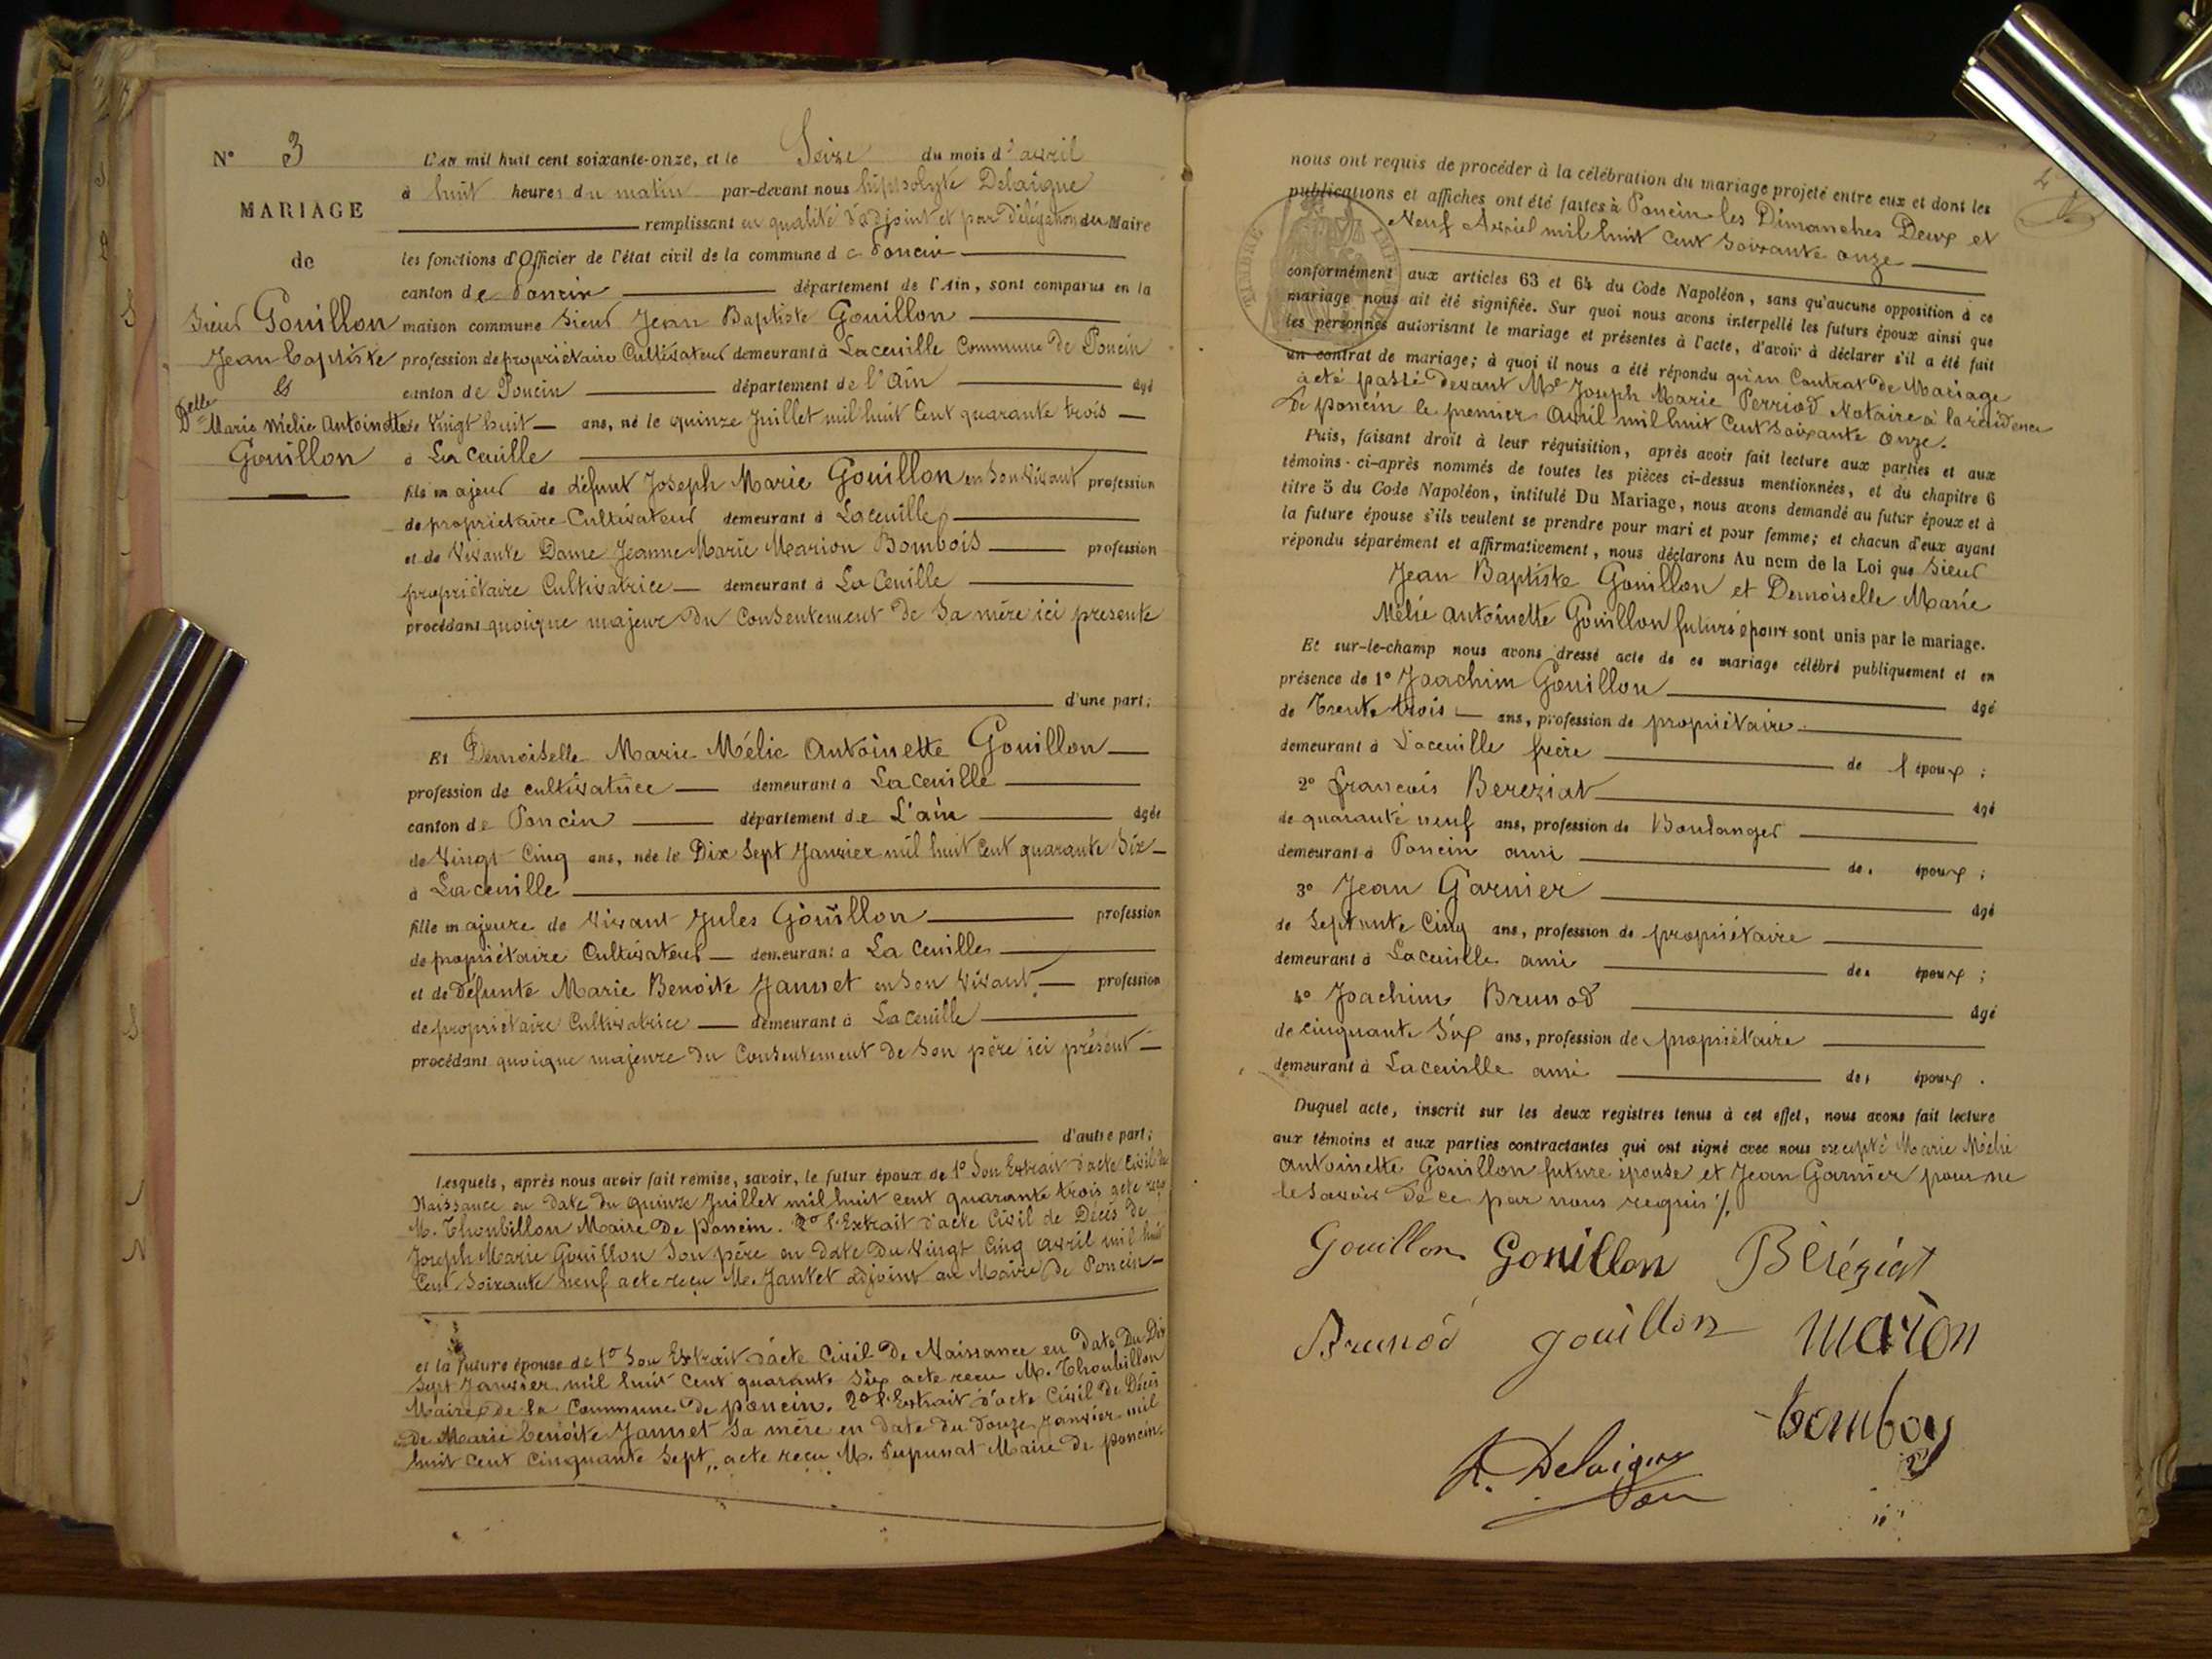 N° 3
MARIAGE
de
Sieur Gouillon
Jean Baptiste
&
Delle Marie Mélie Antoinette
Gouillon
L'an mil huit cent soixante-onze, et le Seize du mois d'avril
à huit heures du matin par-devant nous hippolyte Delaigue
remplissant en qualité d'adjoint et par délégation du Maire
les fonctions d'Officier de l'état civil de la commune de Poncin
canton de Poncin département de l'Ain, sont comparus en la
maison commune Sieur Jean Baptiste Gouillon
profession de propriétaire Cultivateur demeurant à Laceuille Commune de Poncin
canton de Poncin département de l'Ain âgé
de Vingt huit ans, né le quinze Juillet mil huit Cent quarante trois
à La Ceuille
fils majeur de défunt Joseph Marie Gouillon en Son Vivant profession
de propriétaire Cultivateur demeurant à Laceuille
et de Vivante Dame Jeanne Marie Marion Bombois profession
propriétaire Cultivatrice demeurant à La Ceuille
procédant quoique majeur du Consentement de Sa mère ici présente
d'une part;
Et Demoiselle Marie Mélie Antoinette Gouillon
profession de cultivatrice demeurant à Laceuille
canton de Poncin département de L'ain âgée
de Vingt Cinq ans, née le Dix Sept Janvier mil huit Cent quarante Six
à Laceuille
fille majeure de Vivant Jules Gouillon profession
de propriétaire Cultivateur demeurant à La Ceuille
et de Défunte Marie Benoite Jannet en Son Vivant profession
de propriétaire Cultivatrice demeurant à Laceuille
procédant quoique majeure du Consentement de Son père ici présent
d'autre part;
Lesquels, après nous avoir fait remise, savoir, le futur époux de 1° Son Extrait d'acte Civil de
Naissance en date du quinze Juillet mil huit cent quarante trois acte reçu
M. Thoubillon Maire de Poncin. 2° l'Extrait d'acte Civil de Décès de
Joseph Marie Gouillon Son père en date du Vingt Cinq avril mil huit
Cent Soixante neuf acte reçu M. Jantet adjoint au Maire de Poncin
et la future épouse de 1° Son Extrait d'acte Civil de Naissance en date Du Dix
Sept Janvier mil huit cent quarante Six acte reçu M. Thoubillon
Maire de la Commune de poncin. 2° l'Extrait d'acte Civil de Décès
de Marie benoite Jannet Sa mère en date du douze Janvier mil
huit Cent Cinquante Sept, acte reçu M. Pupunat Maire de poncin
nous ont requis de procéder à la célébration du mariage projeté entre eux et dont les
publications et affiches ont été faites à Poncin les Dimanches Deux et
Neuf Avril mil huit Cent Soixante onze
TIMBRE
conformément aux articles 63 et 64 du Code Napoléon, sans qu'aucune opposition à ce
mariage nous ait été signifiée. Sur quoi nous avons interpellé les futurs époux ainsi que
les personnes autorisant le mariage et présentes à l'acte, d'avoir à déclarer s'il a été fait
un contrat de mariage; à quoi il nous a été répondu qu'un Contrat de Mariage
a été passé devant Me Joseph Marie Perriod Notaire à la résidence
de poncin le premier Avril mil huit Cent Soixante onze.
Puis, faisant droit à leur réquisition, après avoir fait lecture aux parties et aux
témoins ci-après nommés de toutes les pièces ci-dessus mentionnées, et du chapitre 6
titre 5 du Code Napoléon, intitulé Du Mariage, nous avons demandé au futur époux et à
la future épouse s'ils veulent se prendre pour mari et pour femme; et chacun d'eux ayant
répondu séparément et affirmativement, nous déclarons Au nom de la Loi que Sieur
Jean Baptiste Gouillon et Demoiselle Marie
Mélie Antoinette Gouillon futurs époux sont unis par le mariage.
Et sur-le-champ nous avons dressé acte de ce mariage célébré publiquement et en
présence de 1° Joachim Gouillon âgé
de Trente trois ans, profession de propriétaire
demeurant à Laceuille frère de l'époux;
2° François Bereziat âgé
de quarante neuf ans, profession de Boulanger
demeurant à Poncin ami des époux;
3° Jean Garnier âgé
de Septante Cinq ans, profession de propriétaire
demeurant à Laceuille ami des époux;
4° Joachim Brunod âgé
de cinquante Six ans, profession de propriétaire
demeurant à Laceuille ami des époux.
Duquel acte, inscrit sur les deux registres tenus à cet effet, nous avons fait lecture
aux témoins et aux parties contractantes qui ont signé avec nous excepté Marie Mélie
Antoinette Gouillon future épouse et Jean Garnier pour ne
le Savoir de ce par nous requis ./.
Gouillon Gouillon Béréziat
Brunod gouillon marion
bomboy
H. Delaigue